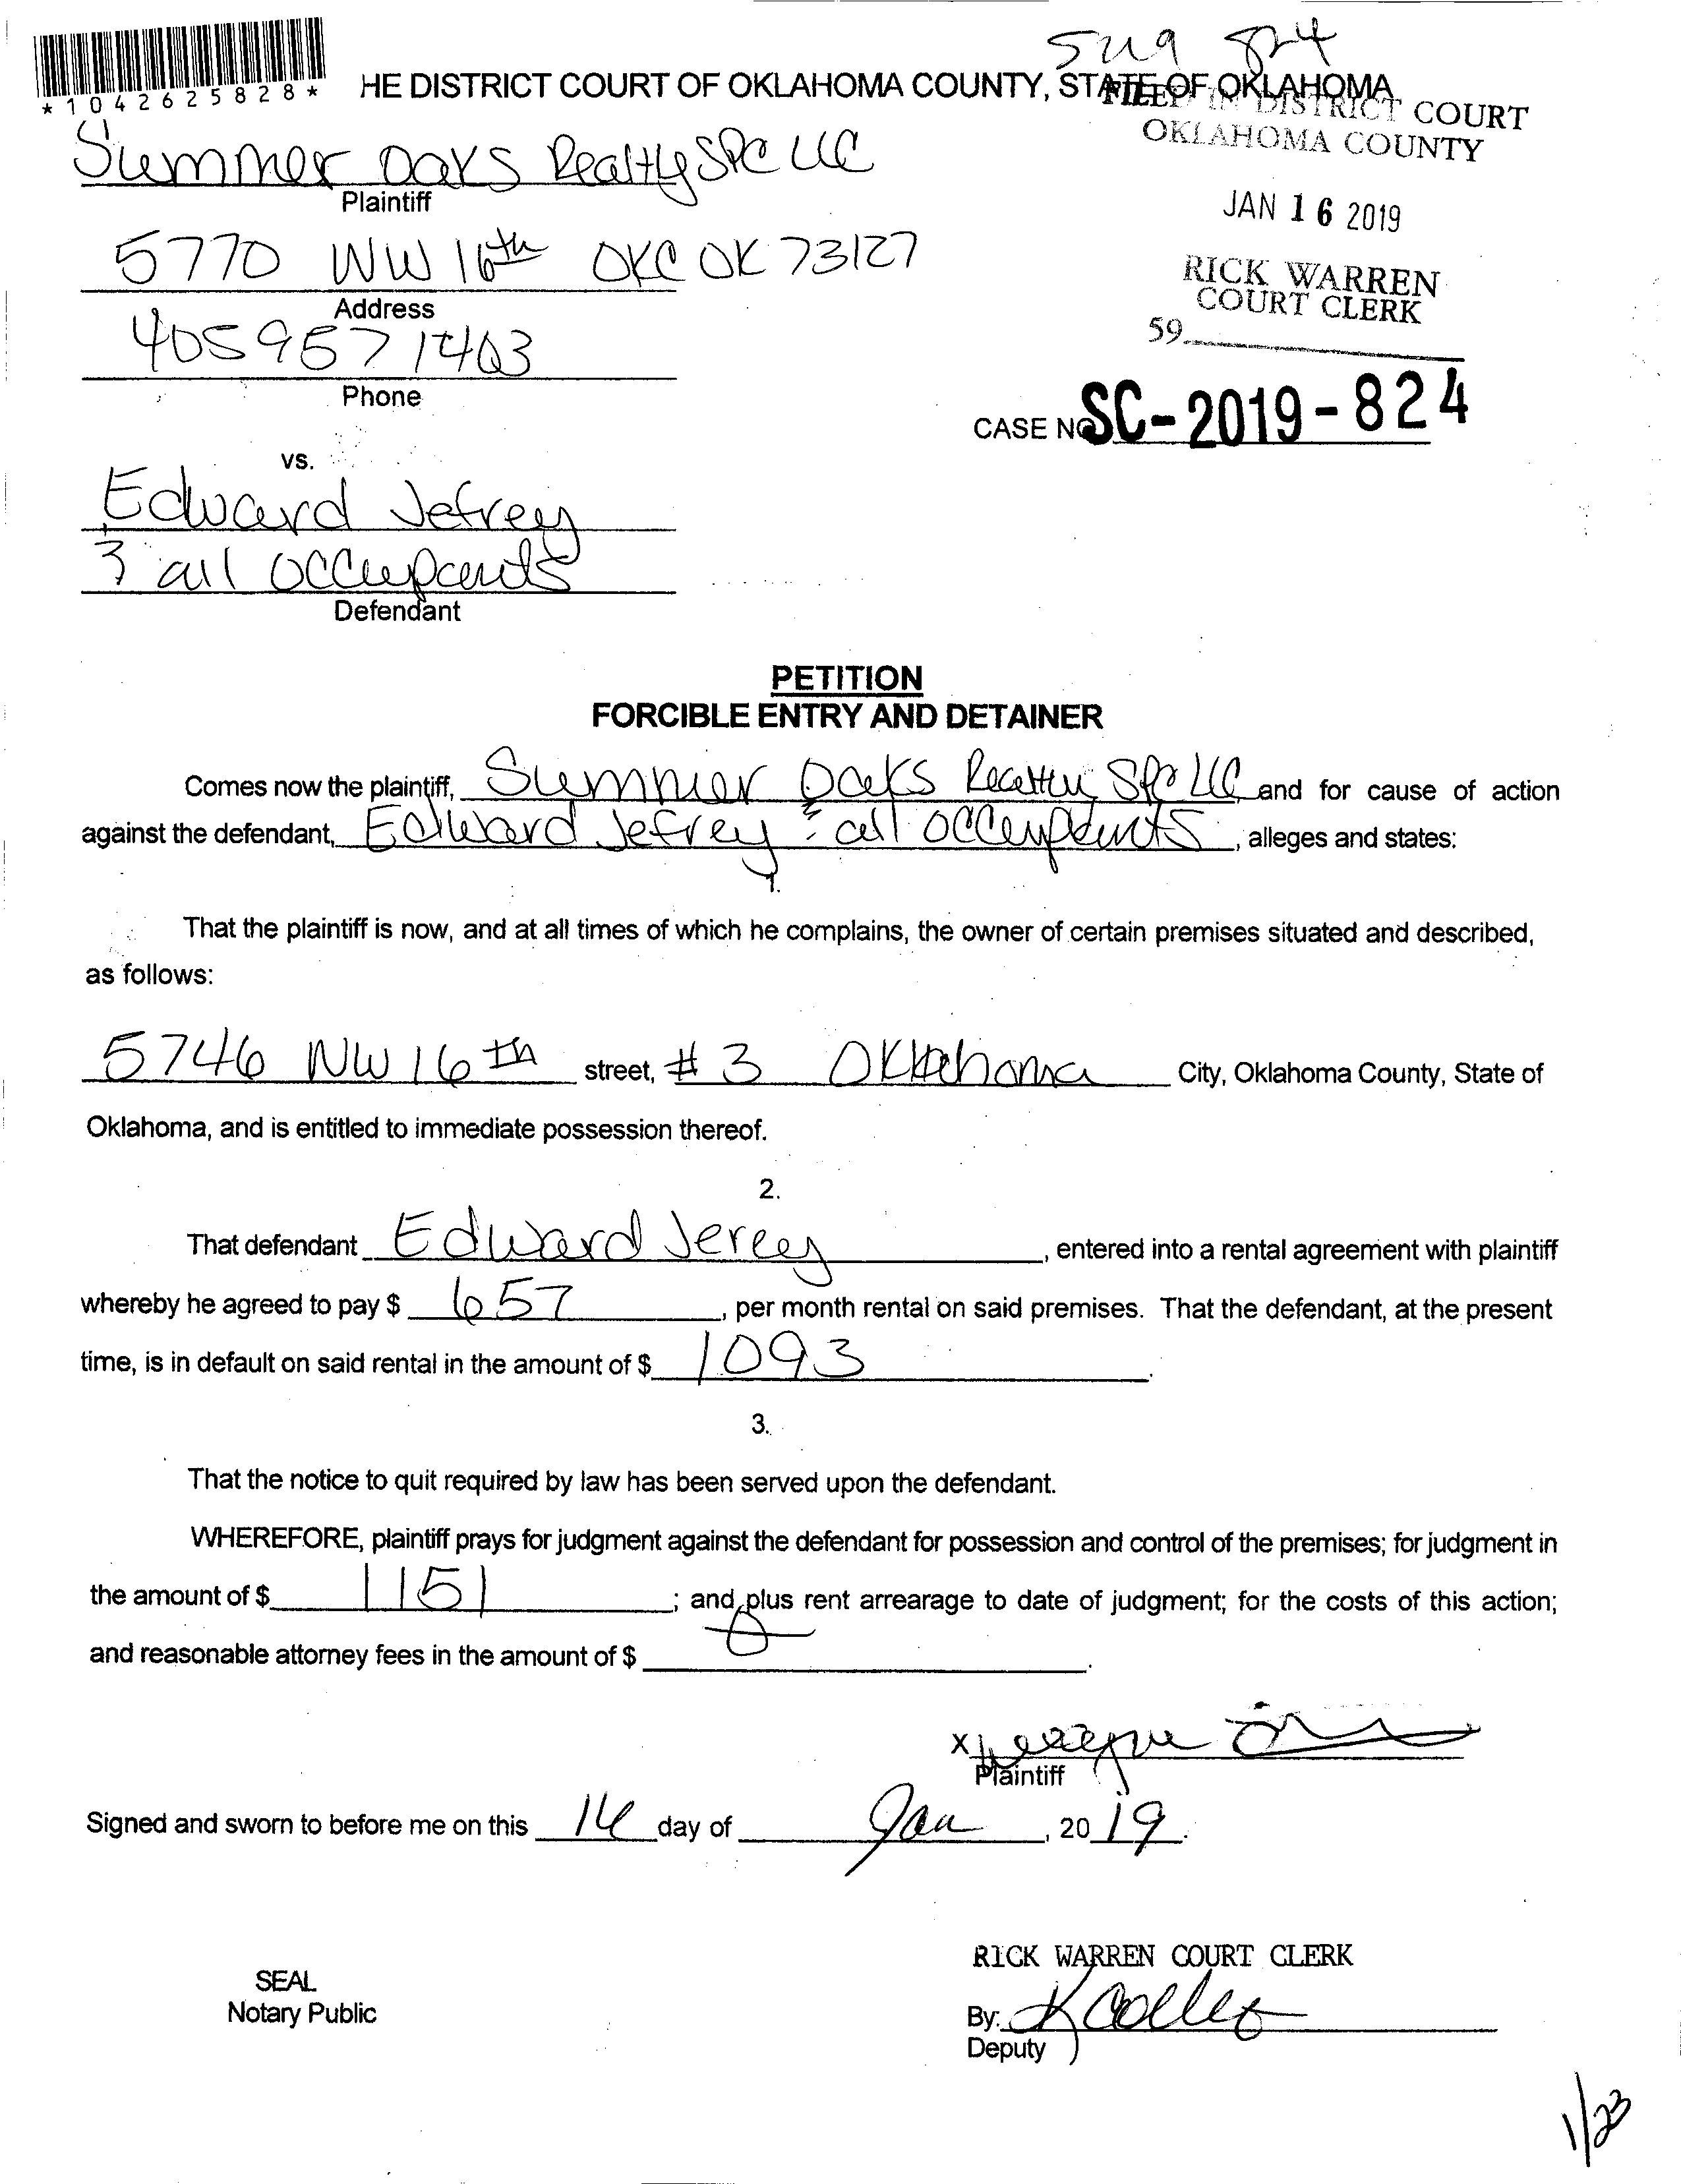 5119 824
*1042625828*
HE DISTRICT COURT OF OKLAHOMA COUNTY, STATE OF OKLAHOMA
FILED IN DISTRICT COURT
OKLAHOMA COUNTY
Summer Oaks Realty SPC LLC
Plaintiff
JAN 16 2019
5770 NW 16th OKC OK 73127
Address
RICK WARREN
COURT CLERK
59
405 957 1403
Phone
CASE NO SC-2019-824
vs.
Edward Jefrey
& all occupants
Defendant
PETITION
FORCIBLE ENTRY AND DETAINER
Comes now the plaintiff, Summer Oaks Realty SPC LLC, and for cause of action
against the defendant, Edward Jefrey & all occupants, alleges and states:
1.
That the plaintiff is now, and at all times of which he complains, the owner of certain premises situated and described,
as follows:
5746 NW 16th street, # 3 Oklahoma City, Oklahoma County, State of
Oklahoma, and is entitled to immediate possession thereof.
2.
That defendant Edward Jerey, entered into a rental agreement with plaintiff
whereby he agreed to pay $ 657, per month rental on said premises. That the defendant, at the present
time, is in default on said rental in the amount of $ 1093.
3.
That the notice to quit required by law has been served upon the defendant.
WHEREFORE, plaintiff prays for judgment against the defendant for possession and control of the premises; for judgment in
the amount of $ 1151; and plus rent arrearage to date of judgment; for the costs of this action;
and reasonable attorney fees in the amount of $ 0.
X
Plaintiff
Signed and sworn to before me on this 16 day of Jan, 2019.
RICK WARREN COURT CLERK
SEAL
Notary Public
By:
Deputy
1/23